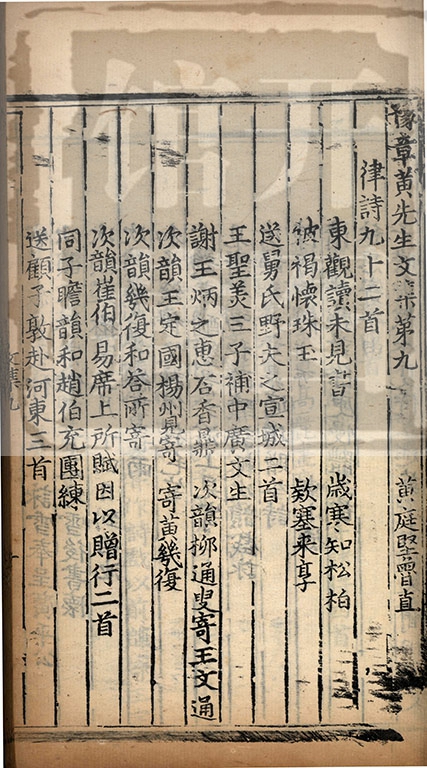 豫章黃先生文集第九 黃庭堅魯直
律詩九十二首
東觀讀未見書 歲寒知松柏
被褐懷珠玉 欵塞来享
送舅氏野夫之宣城二首
王聖美三子補中廣文生
謝王炳之惠石香鼎 次韻柳通叟寄王文通
次韻王定國揚州見寄 寄黃幾復
次韻幾復和答所寄
次韻崔伯易席上所賦因以贈行二首
同子瞻韻和趙伯充團練
送顧子敦赴河東三首
文集九